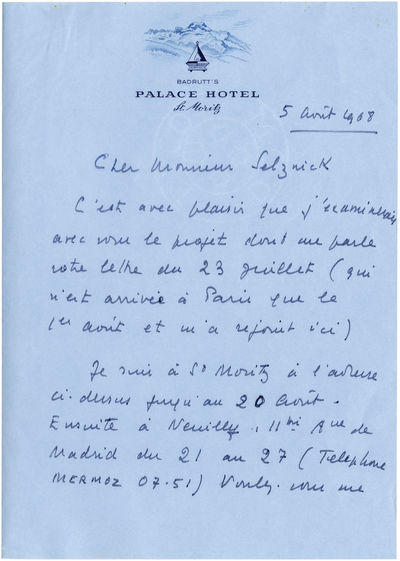 BADRUTT'S
PALACE HOTEL
St. Moritz
5 Août 1968
Cher Monsieur Selznick
C'est avec plaisir que j'examinerais
avec vous le projet dont me parle
votre lettre du 23 Juillet (qui
n'est arrivée à Paris que le
1er août et m'a rejoint ici)
Je suis à St Moritz à l'adresse
ci-dessus jusqu'au 20 Août.
Ensuite à Neuilly, 11bis Ave de
Madrid du 21 au 27 (Téléphone
MERMOZ 07.51) Voulez-vous me